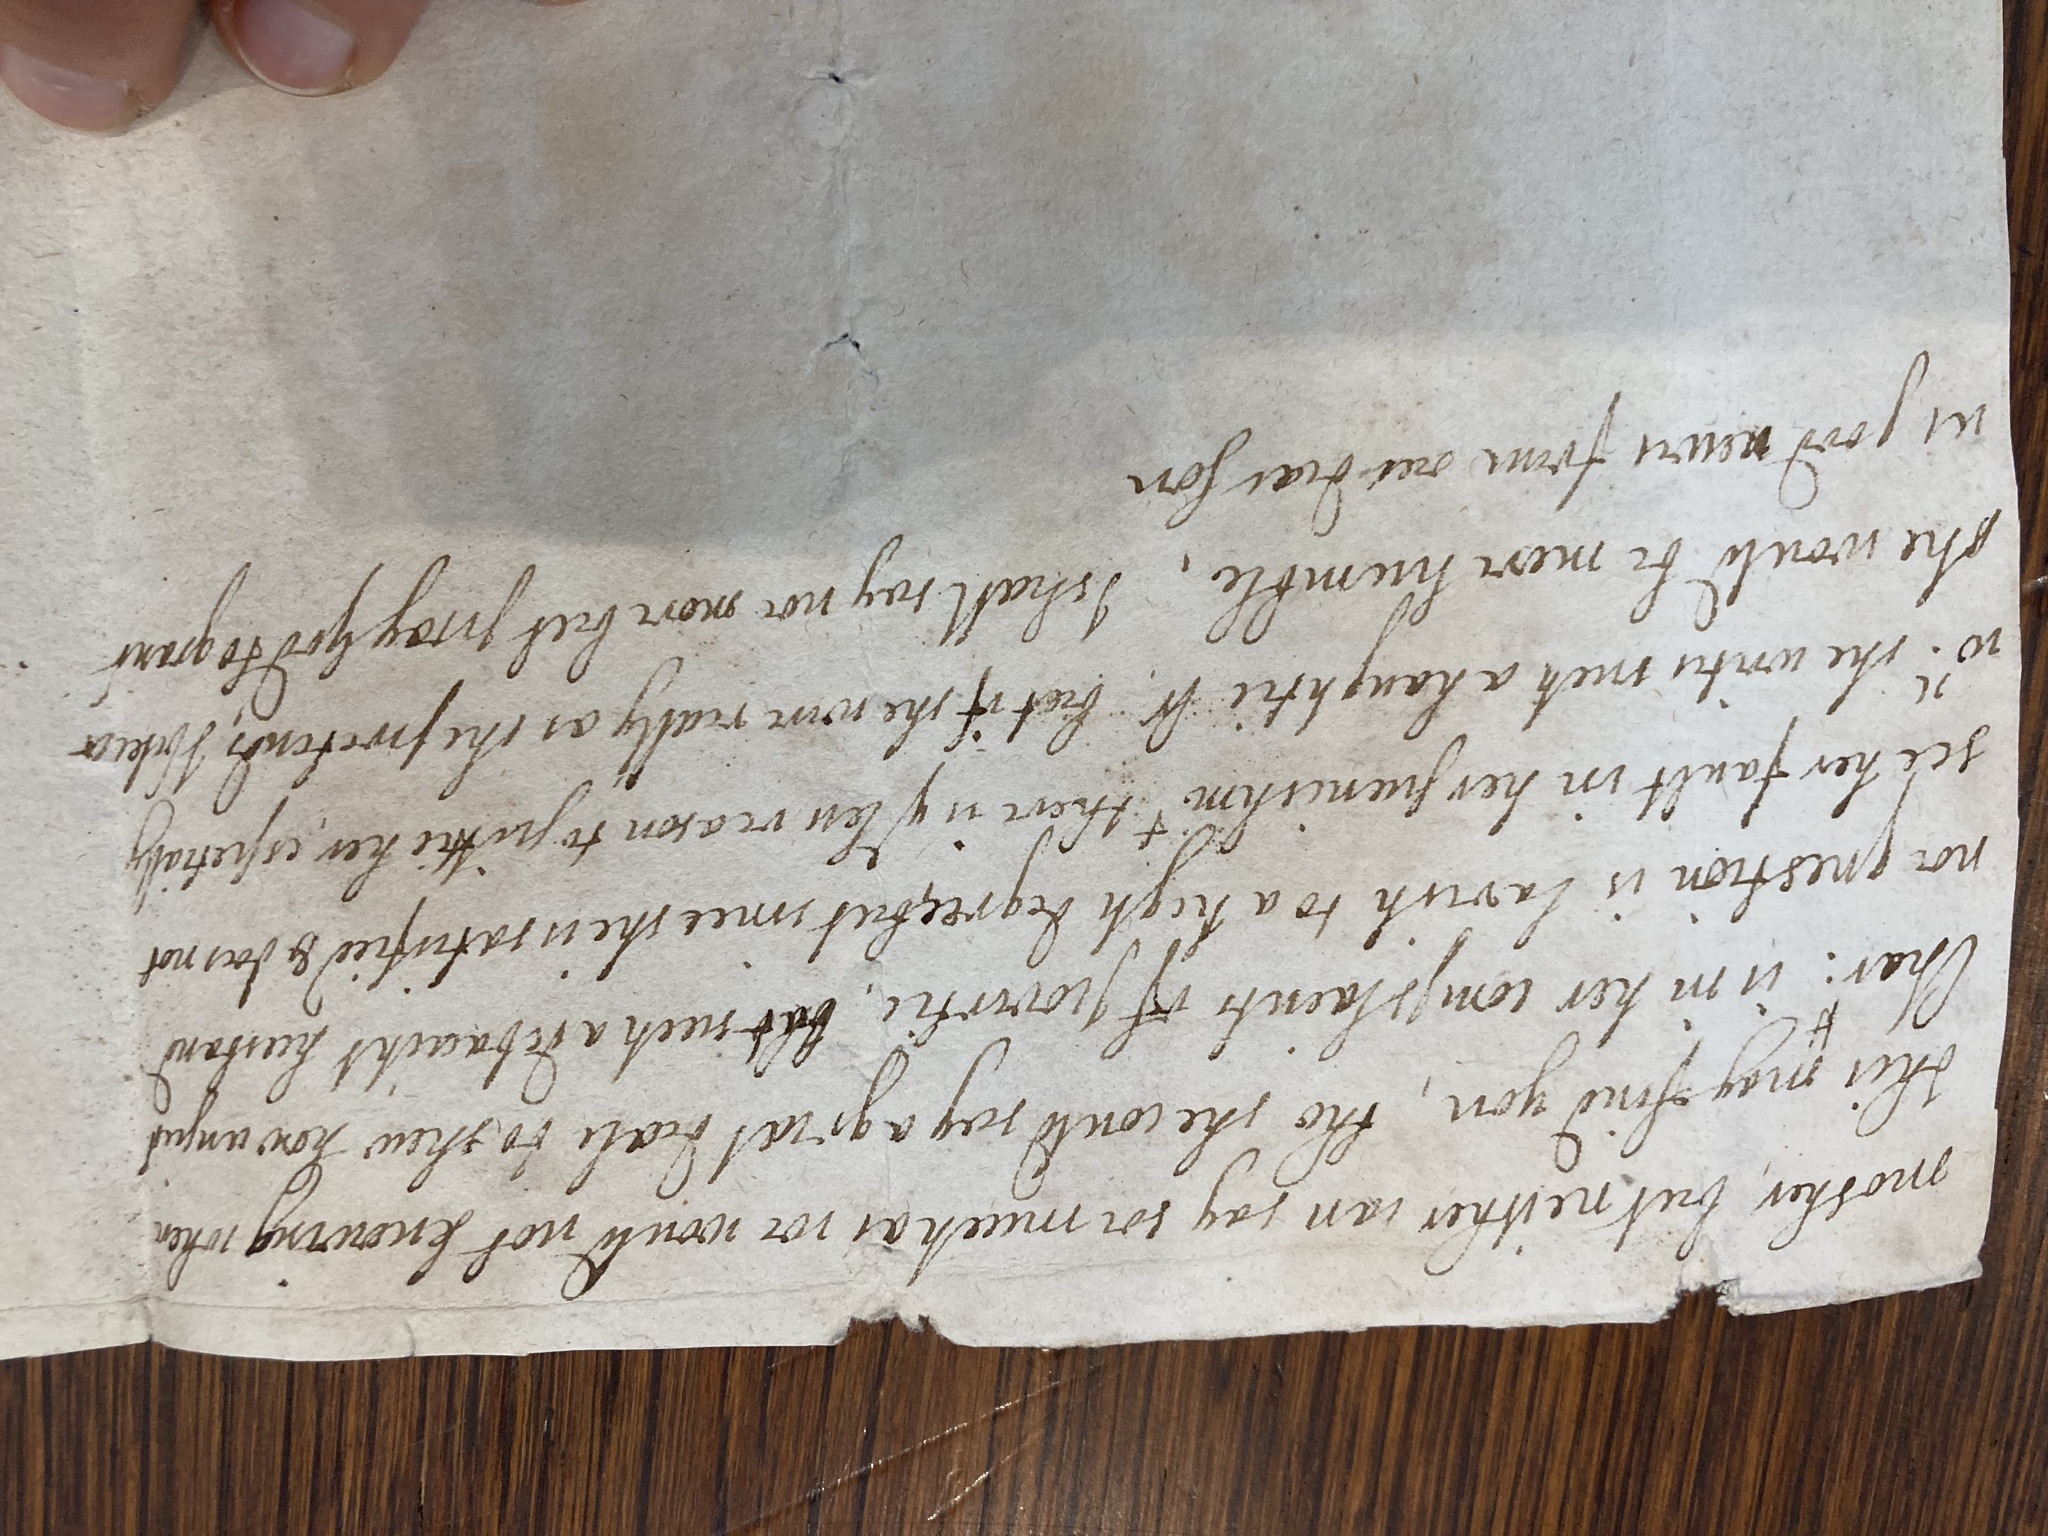 mother, but neither can say soe much as wee would not knowing when
this may find you, tho she could say a great deale to shew how unjust
Char:tt is in her complaints of povertie, but such a debaucht husband
noe question is lavish to a high degree, but since she is satisfied & does not
see her fault in her punishmt there is ye less reason to pittie her, espetially
wn: she writes such a haughtie ltr. but if she were really as she pretends, I beleeve
she would be more humble, I shall say noe more but pray god to grant
us good newes from our dear son